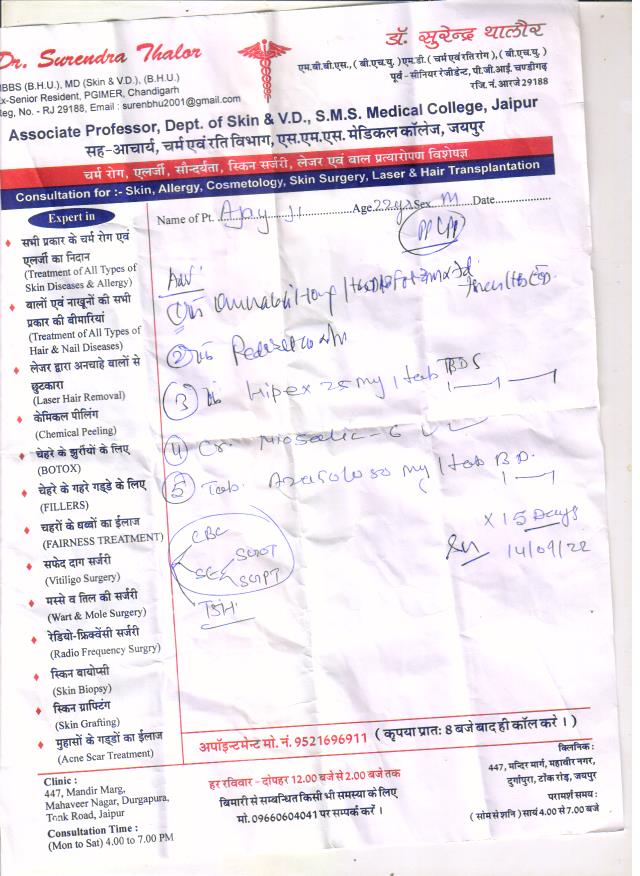 Dr. Surendra Thalor
MBBS (B.H.U.), MD (Skin & V.D.), (B.H.U.)
Ex-Senior Resident, PGIMER, Chandigarh
Reg, No. - RJ 29188, Email : surenbhu2001@gmail.com
डॉ. सुरेन्द्र थालौर
एम.बी.बी.एस., ( बी.एच.यु. )एम.डी. ( चर्म एवं रति रोग ), ( बी.एच.यु. )
पूर्व - सीनियर रेजीडेन्ट, पी.जी.आई. चण्डीगढ़
रजि. नं. आरजे 29188
Associate Professor, Dept. of Skin & V.D., S.M.S. Medical College, Jaipur
सह-आचार्य, चर्म एवं रति विभाग, एस.एम.एस. मेडिकल कॉलेज, जयपुर
चर्म रोग, एलर्जी, सौन्दर्यता, स्किन सर्जरी, लेजर एवं बाल प्रत्यारोपण विशेषज्ञ
Consultation for :- Skin, Allergy, Cosmetology, Skin Surgery, Laser & Hair Transplantation
Expert in
Name of Pt. Ajay Ji Age 22 yrs Sex M Date
सभी प्रकार के चर्म रोग एवं
एलर्जी का निदान
(Treatment of All Types of
Skin Diseases & Allergy)
बालों एवं नाखूनों की सभी
प्रकार की बीमारियां
(Treatment of All Types of
Hair & Nail Diseases)
लेजर द्वारा अनचाहे बालों से
छुटकारा
(Laser Hair Removal)
केमिकल पीलिंग
(Chemical Peeling)
चेहरे के झुर्रीयों के लिए
(BOTOX)
चेहरे के गहरे गड्डे के लिए
(FILLERS)
चहरों के धब्बों का ईलाज
(FAIRNESS TREATMENT)
सफेद दाग सर्जरी
(Vitiligo Surgery)
मस्से व तिल की सर्जरी
(Wart & Mole Surgery)
रेडियो-फ्रिक्वेंसी सर्जरी
(Radio Frequency Surgry)
स्किन बायोप्सी
(Skin Biopsy)
स्किन ग्राफ्टिंग
(Skin Grafting)
मुहासों के गड्डों का ईलाज
(Acne Scar Treatment)
Adv
1
2
3 Hipex 25 mg 1 tab BDS
4 Cr. Miosalic-6
5 Tab. 50 mg 1 tab B.D.
X 15 Days
14/09/22
CBC
SGOT
SGPT
TSH
अपॉइन्टमेन्ट मो. नं. 9521696911 ( कृपया प्रातः 8 बजे बाद ही कॉल करे । )
Clinic :
447, Mandir Marg,
Mahaveer Nagar, Durgapura,
Tonk Road, Jaipur
Consultation Time :
(Mon to Sat) 4.00 to 7.00 PM
हर रविवार - दोपहर 12.00 बजे से 2.00 बजे तक
बिमारी से सम्बन्धित किसी भी समस्या के लिए
मो. 09660604041 पर सम्पर्क करें ।
क्लिनिक :
447, मन्दिर मार्ग, महावीर नगर,
दुर्गापुरा, टोंक रोड़, जयपुर
परामर्श समय :
( सोम से शनि ) सायं 4.00 से 7.00 बजे